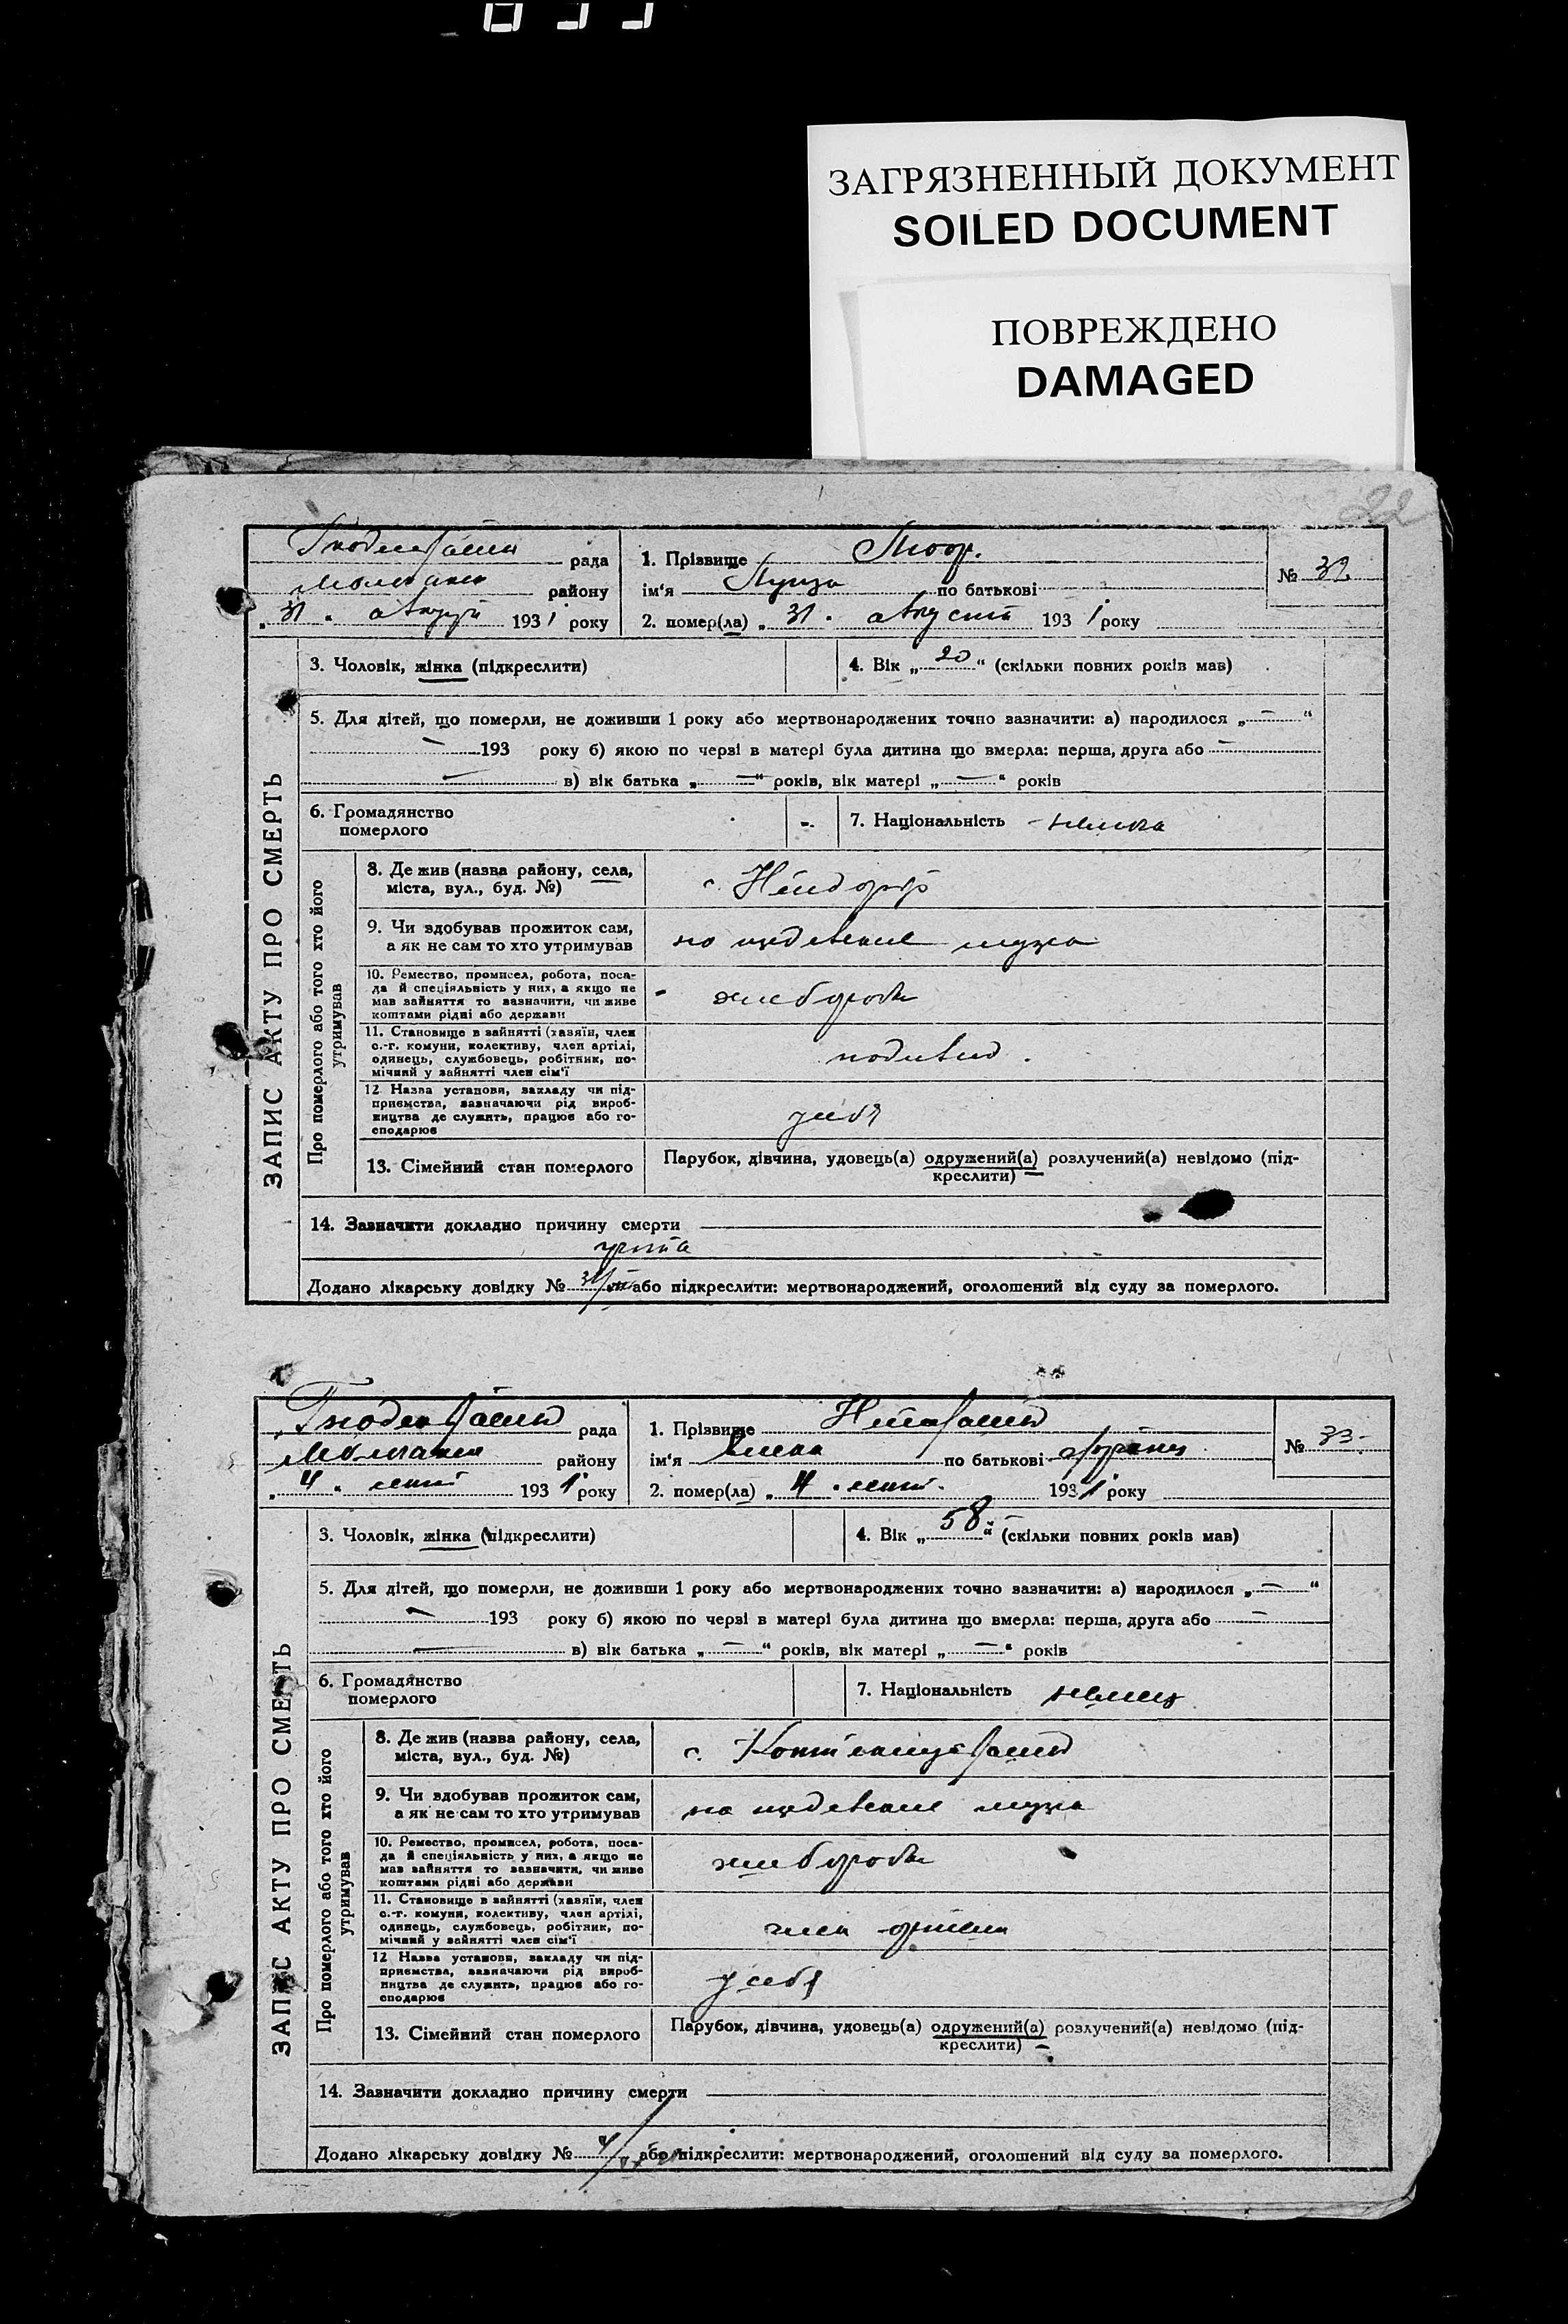 ЗАГРЯЗНЕННЫЙ ДОКУМЕНТ
SOILED DOCUMENT
ПОВРЕЖДЕНО
DAMAGED
22
рада
району
„ 31 „ 1931 року
1. Прізвище
ім'я Луиза по батькові
2. помер(ла) „ 31 „ август 1931 року
№ 32
ЗАПИС АКТУ ПРО СМЕРТЬ
3. Чоловік, жінка (підкреслити)
4. Вік „ 20 “ (скільки повних років мав)
5. Для дітей, що померли, не доживши 1 року або мертвонароджених точно зазначити: а) народилося „ — “
— 193 року б) якою по черзі в матері була дитина що вмерла: перша, друга або —
— в) вік батька „ — “ років, вік матері „ — “ років
6. Громадянство
померлого
7. Національність немка
Про померлого або того хто його
утримував
8. Де жив (назва району, села,
міста, вул., буд. №)
с. Нейдорф
9. Чи здобував прожиток сам,
а як не сам то хто утримував
на иждевение мужа
10. Ремество, промисел, робота, поса-
да й спеціяльність у них, а якщо не
мав зайняття то зазначити, чи живе
коштами рідні або держави
хлебороб
11. Становище в зайнятті (хазяїн, член
с.-г. комуни, колективу, член артілі,
одинець, службовець, робітник, по-
мічний у зайнятті член сім'ї
12 Назва установи, закладу чи під-
приємства, зазначаючи рід вироб-
ництва де служить, працює або го-
сподарює
у себя
13. Сімейний стан померлого
Парубок, дівчина, удовець(а) одружений(а) розлучений(а) невідомо (під-
креслити)
14. Зазначити докладно причину смерти
Додано лікарську довідку № 31/ або підкреслити: мертвонароджений, оголошений від суду за померлого.
рада
району
„ 4 „ сент 1931 року
1. Прізвище
ім'я по батькові
2. помер(ла) „ 4 „ сент. 1931 року
№ 33
ЗАПИС АКТУ ПРО СМЕРТЬ
3. Чоловік, жінка (підкреслити)
4. Вік „ 58 “ (скільки повних років мав)
5. Для дітей, що померли, не доживши 1 року або мертвонароджених точно зазначити: а) народилося „ — “
— 193 року б) якою по черзі в матері була дитина що вмерла: перша, друга або —
— в) вік батька „ — “ років, вік матері „ — “ років
6. Громадянство
померлого
7. Національність немец
Про померлого або того хто його
утримував
8. Де жив (назва району, села,
міста, вул., буд. №)
с.
9. Чи здобував прожиток сам,
а як не сам то хто утримував
на иждевение мужа
10. Ремество, промисел, робота, поса-
да й спеціяльність у них, а якщо не
мав зайняття то зазначити, чи живе
коштами рідні або держави
хлебороб
11. Становище в зайнятті (хазяїн, член
с.-г. комуни, колективу, член артілі,
одинець, службовець, робітник, по-
мічний у зайнятті член сім'ї
член артели
12 Назва установи, закладу чи під-
приємства, зазначаючи рід вироб-
ництва де служить, працює або го-
сподарює
у себя
13. Сімейний стан померлого
Парубок, дівчина, удовець(а) одружений(а) розлучений(а) невідомо (під-
креслити)
14. Зазначити докладно причину смерти
Додано лікарську довідку № 4/ або підкреслити: мертвонароджений, оголошений від суду за померлого.